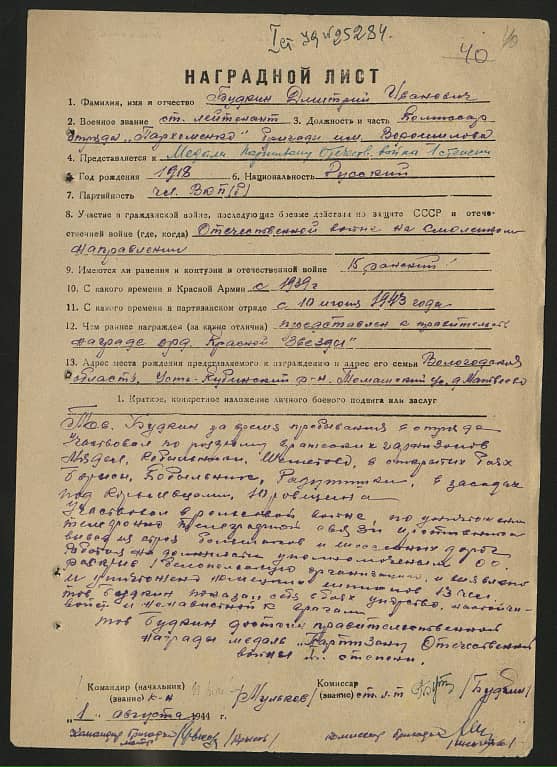 Iст уд №25284.
40
НАГРАДНОЙ ЛИСТ
1. Фамилия, имя и отчество Будкин Дмитрий Иванович
2. Военное звание ст. лейтенант 3. Должность и часть Комиссар
отряда "Пархоменко" бригады им. Ворошилова
4. Представляется к Медали Партизану Отечеств. война I степени
5. Год рождения 1918 6. Национальность Русский
7. Партийность чл. ВКП(б)
8. Участие в гражданской войне, последующие боевые действия по защите СССР и отече-
ственной войне (где, когда) Отечественной войне на Смоленском
направлении
9. Имеются ли ранения и контузии в отечественной войне
10. С какого времени в Красной Армии с 1939г
11. С какого времени в партизанском отряде с 10 июня 1943 года
12. Чем ранее награжден (за какие отличия) представлен к правительств
награде орд. Красной "Звезды"
13. Адрес места рождения представляемого к награждению и адрес его семьи Вологодская
область, Усть-Кубинский р-н, Томашский д. Матвеево
1. Краткое, конкретное изложение личного боевого подвига или заслуг
Тов. Будкин за время пребывания в отряде
Участвовал по разгрому вражеских гарнизонов
Мядел, Кобыльники, в открытых боях
в засадах
под
Участвовал в рельсовой войне, по уничтожению
телефонно телеграфной связи
вывод из строя и шоссейных дорог
Работая на должности уполномоченным ОО.
организацию, и выявлено
и уничтожено немецких шпионов 13 чел.
тов. Будкин показал себя в боях упорство, настойчи-
вость и ненавистной к врагам
тов Будкин достоин правительственной
награды медаль "Партизану Отечественной
войны степени.
Командир (начальник)
(звание) к-н /Мулькев/
Комиссар
(звание) ст. л-т /Будкин/
"1" августа 1944 г.
Командир бригады
комиссар бригады